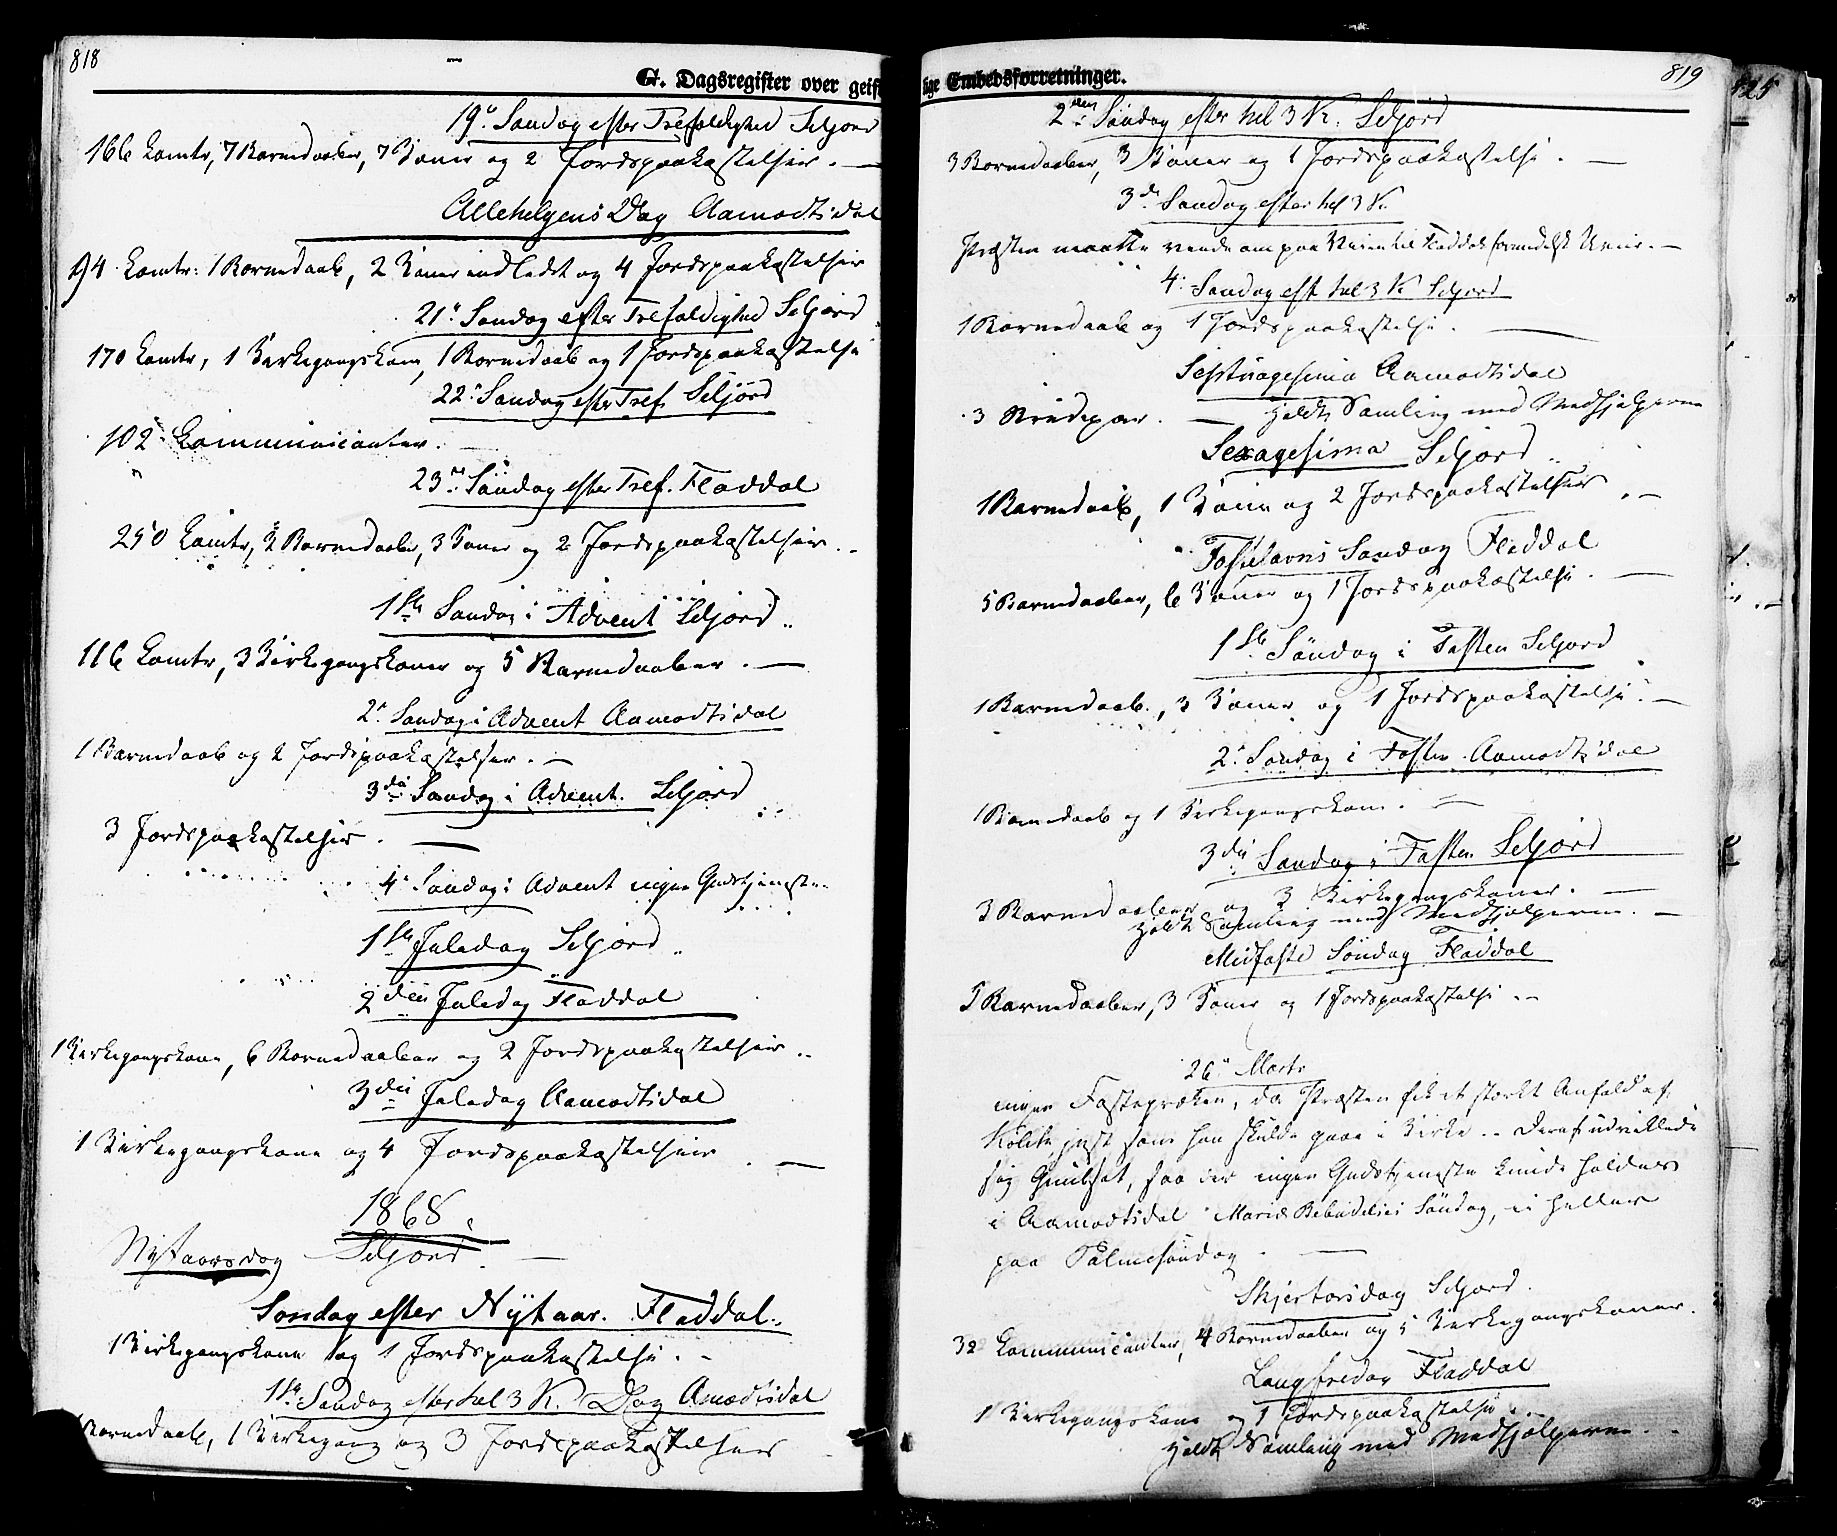 818
G. Dagsregister over geist
19e Søndag efter Trefoldighed Seljord
166 Comtr, 7 Barnedaaber, 7 Koner og 2 Jordspaakastelser. —
Allehelgens Dag Aamodtsdal
94 Comtr: 1 Barnedaab, 2 Koner indledt og 4 Jordspaakastelser
21e Søndag efter Trefoldighed Seljord
170 Comtr, 1 Kirkegangskone, 1 Barnedaab og 1 Jordspaakastelse
22e Søndag efter Tref. Seljord
102 Communicanter.
23e Søndag efter Tref. Fladdal
250 Comtr, Barnedaaber, 3 Koner og 2 Jordspaakastelser.
1ste Søndag i Advent Seljord
116 Comtr, 3 Kirkegangskoner og 5 Barnedaaber. —
2e Søndag i Advent Aamodtsdal
1 Barnedaab og 2 Jordspaakastelser. —
3die Søndag i Advent. Seljord
3 Jordspaakastelser. —
4e Søndag i Advent ingen Gudstjeneste
1ste Juledag Seljord
2den Juledag Fladdal
1 Kirkegangskone, 6 Barnedaaber og 2 Jordspaakastelser
3die Juledag Aamodtsdal
1 Kirkegangskone og 4 Jordspaakastelser. —
1868
Nytaarsdag Seljord —
Søndag efter Nytaar. Fladdal.
1 Kirkegangskone og 1 Jordspaakastelse. -
1ste Søndag efter hel 3 K. Dag Amodtsdal
Barnedaab, 1 Kirkegang og 3 Jordspaakastelser
819
ige Embedsforretninger.
2den Søndag efter hel 3 K. Seljord
3 Barnedaaber, 3 Koner og 1 Jordspaakastelse. —
3die Søndag efter hel 3 K
Præsten maatte vende om paa Veien til Fladdal formedelst Uveir. —
4e Søndag eft hel 3 K Seljord
1 Barnedaab og 1 Jordspaakastelse. —
Septuagesima Aamodtsdal
3 Brudepar. — Holdt Samling med Medhjelperne
Sexagesima Seljord
1 Barnedaab, 1 Kone og 2 Jordspaakastelser. —
Fastelavns Søndag Fladdal
5 Barnedaaber, 6 Koner og 1 Jordspaakastelse. —
1ste Søndag i Fasten Seljord
1 Barnedaab, 3 Koner og 1 Jordspaakastelse. —
2e Søndag i Fasten Aamodtsdal
1 Barnedaab og 1 Kirkegangskone. —
3die Søndag i Fasten Seljord
3 Barnedaaber og 3 Kirkegangskoner. —
Holdt Samling med Medhjelperne. —
Midfaste Søndag Fladdal
5 Barnedaaber, 3 Koner og 1 Jordspaakastelse. -
26e Marts
ingen Fasteprædken, da Præsten fik et stærkt Anfald af
Kolik, just som han skulde gaae i Kirke. Deraf udviklede
sig Guulsot, saa der ingen Gudstjeneste kunde holdes
i Aamodtsdal Mariæ Bebudelses Søndag, ei heller
paa Palmesøndag. —
Skjertorsdag Seljord.
32 Communicanter, 4 Barnedaaber og 5 Kirkegangskoner.
Langfredag Fladdal
1 Kirkegangskone og 1 Jordspaakastelse. -
Holdt Samling med Medhjelperne. -
825